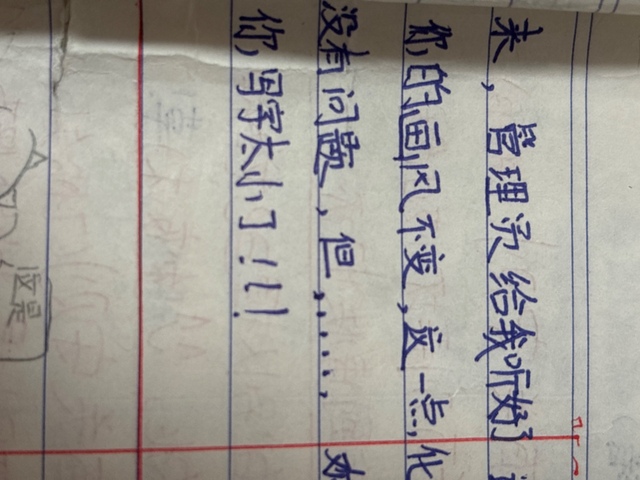 来，管理员给我听好了
你的画风不变，这一点，化
没有问题，但......，
你，写字太小了！！！
这是